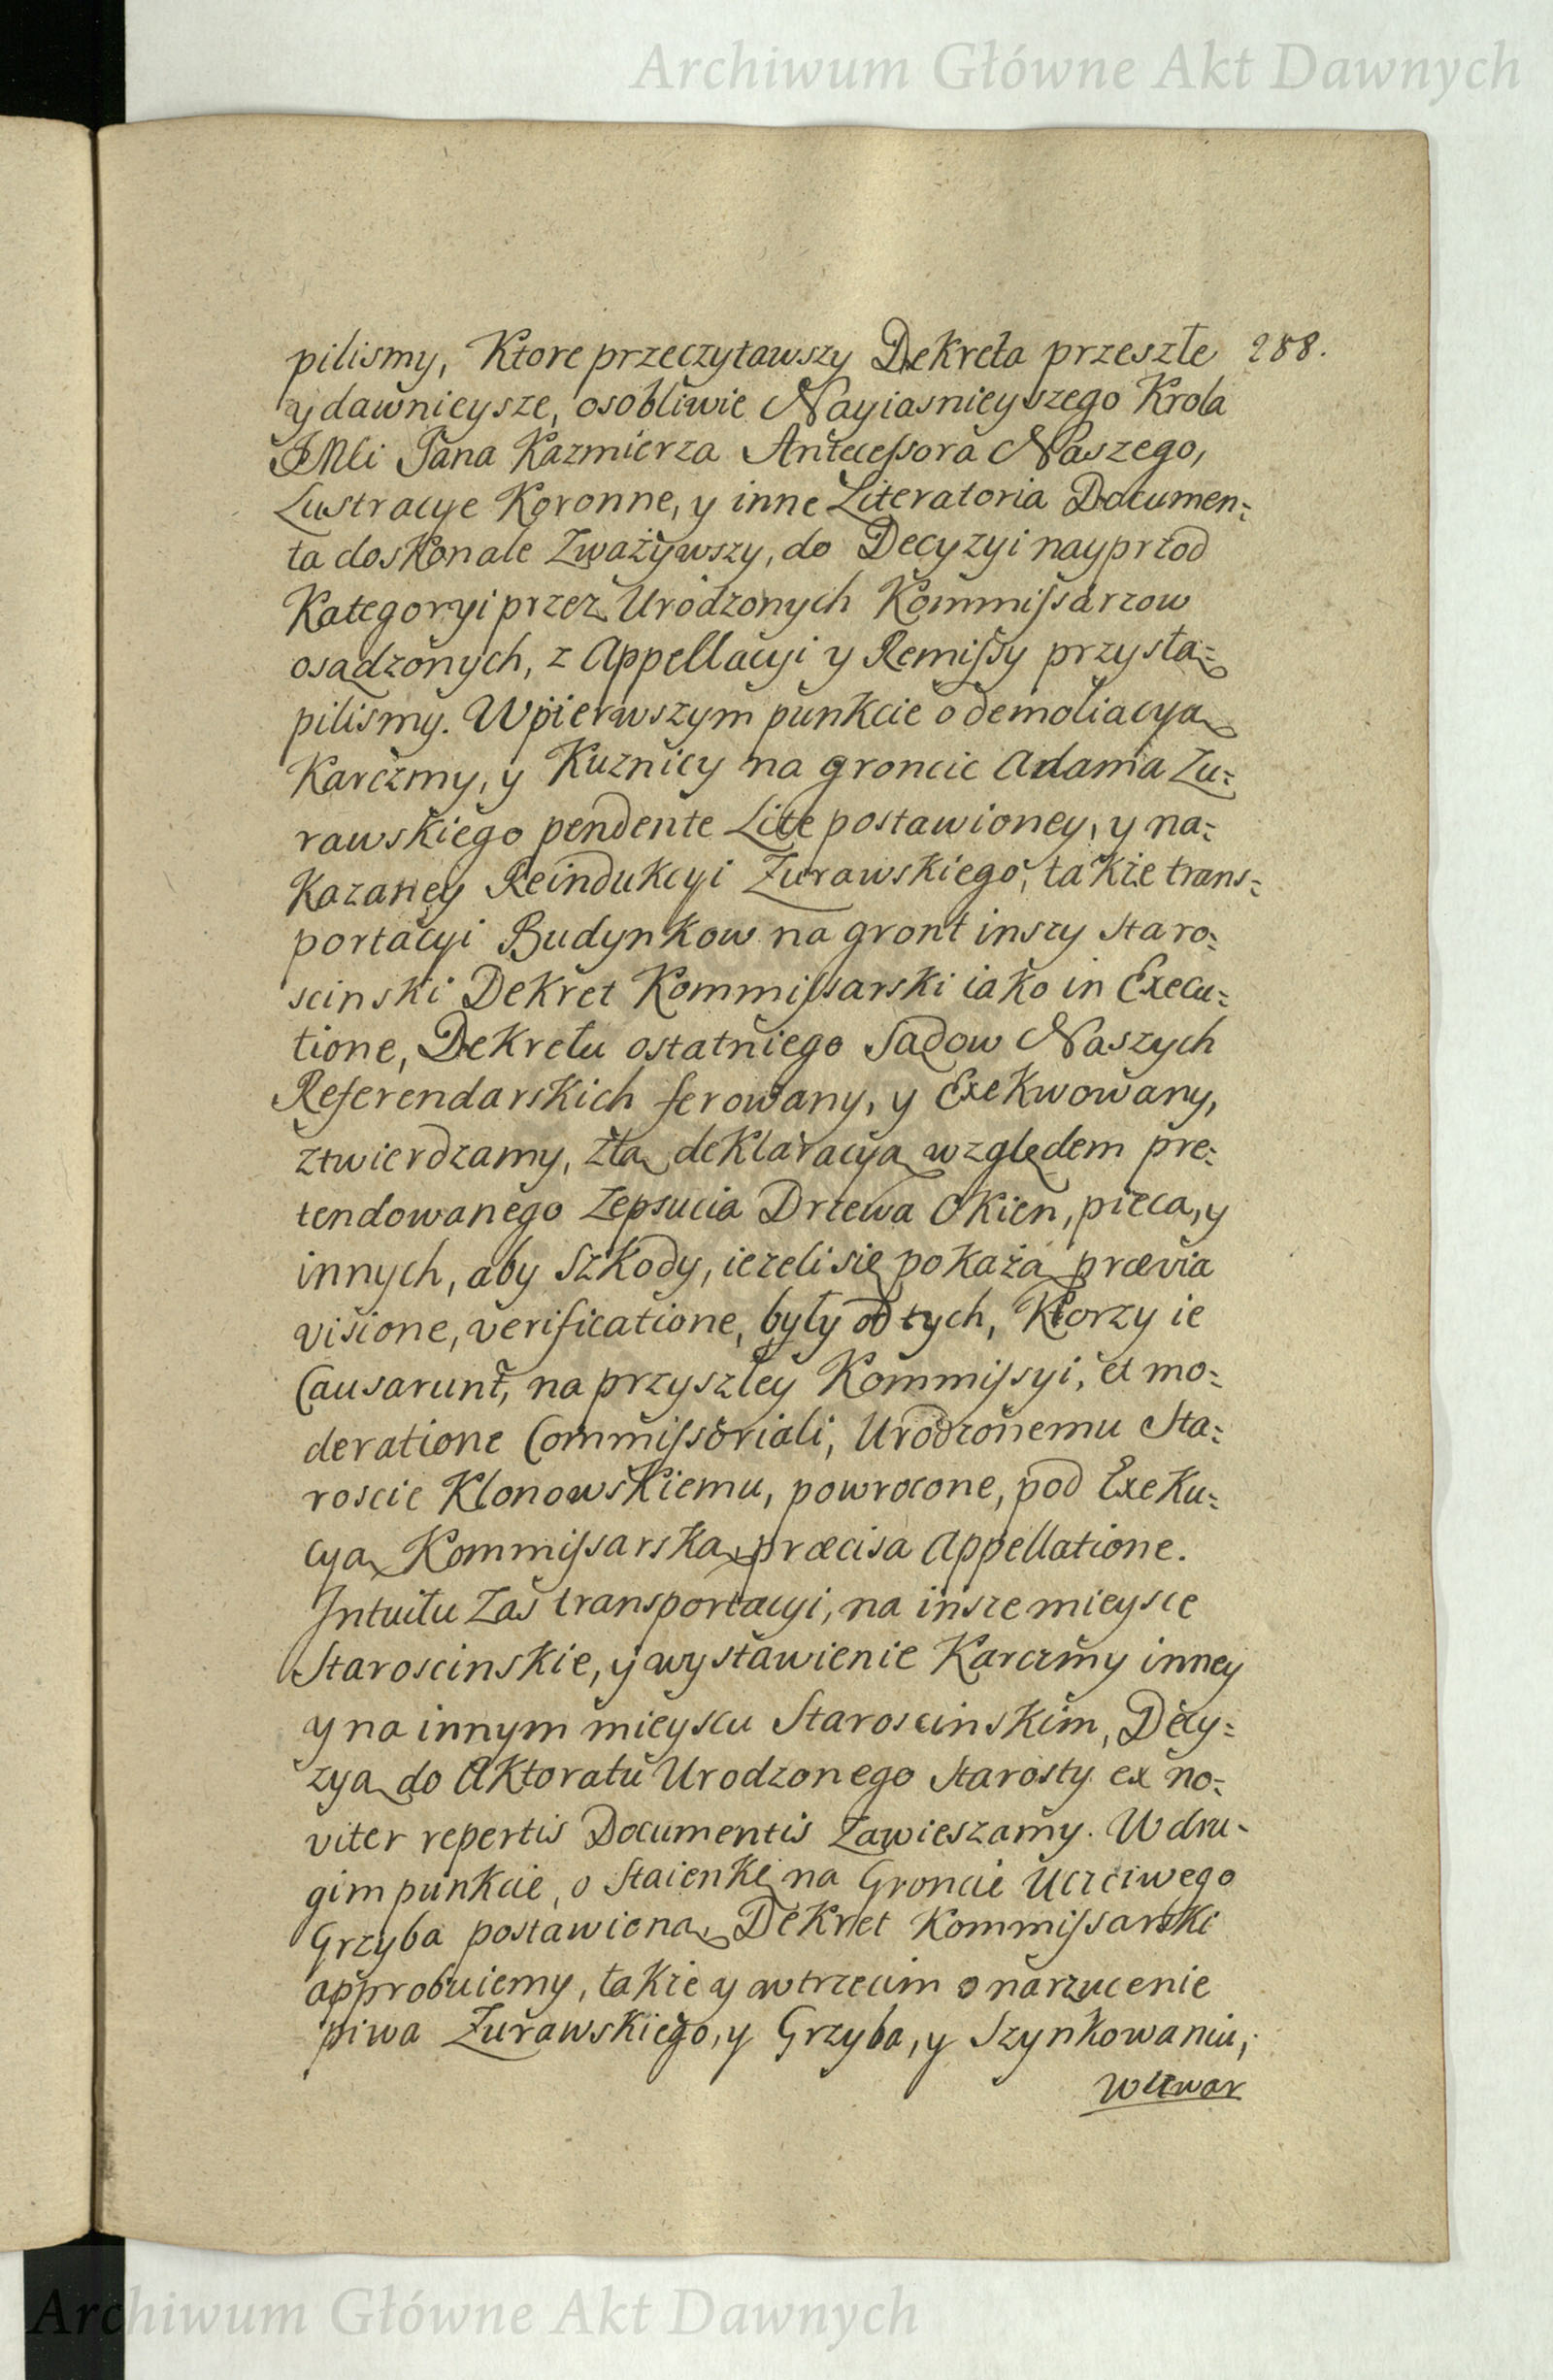 Archiwum Główne Akt Dawnych
pilismy, Ktore przeczytawszy Dekreta przeszłe 288.
y dawnieysze, osobliwie Nayiasnieyszego Krola
JMci Jana Kazmierza Antecessora Naszego,
Lustracye Koronne, y inne Literatoria Documen=
ta doskonale Zważywszy, do Decyzyi nayprzod
Kategoryi przez Urodzonych Kommissarzow
osądzonych, z Appellacyi y Remissy przystą=
pilismy. W pierwszym punkcie o demoliacyą
Karczmy, y Kuznicy na groncie Adama Zu=
rawskiego pendente Lite postawioney, y na=
Kazaney Reindukcyi Zurawskiego, także trans=
portacyi Budynkow na gront inszy Staro=
scinski Dekret Kommissarski iako in Execu=
tione, Dekretu ostatniego Sądow Naszych
Referendarskich ferowany, y Exekwowany,
ztwierdzamy, ztą deklaracyą względem pre=
tendowanego Zepsucia Drzewa Okien, pieca, y
innych, aby Szkody, iezeli się pokażą prævia
visione, verificatione, były od tych, Ktorzy ie
Causarunt, na przyszłey Kommissyi, et mo=
deratione Commissoriali, Urodzonemu Sta=
roscie Klonowskiemu, powrocone, pod Exeku=
cyą Kommissarską præcisa Appellatione.
Intuitu Zas transportacyi, na insze mieysce
Staroscinskie, y wystawienie Karczmy inney
y na innym mieyscu Staroscinskim, Decy=
zyą do Aktoratu Urodzonego Starosty ex no=
viter repertis Documentis Zawieszamy. W dru-
gim punkcie, o Staienkę na Groncie Uczciwego
Grzyba postawioną Dekret Kommissarski
approbuiemy, takze y w trzecim o narzucenie
piwa Zurawskiego, y Grzyba, y Szynkowaniu,
Archiwum Główne Akt Dawnych